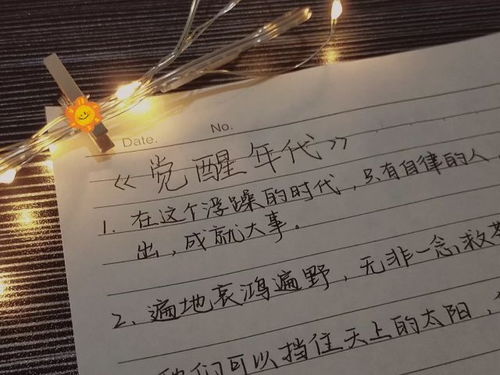 Date. No.
《觉醒年代》
1. 在这个浮躁的时代，只有自律的人
出，成就大事。
2. 遍地哀鸿遍野，无非一念救苍
们可以挡住天上的太阳，